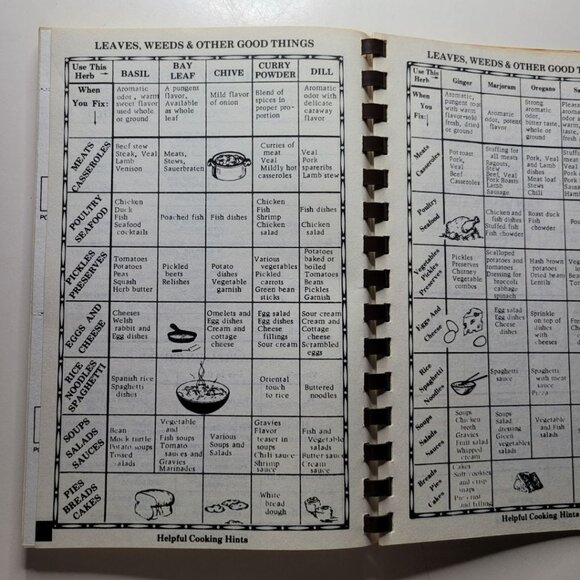 LEAVES, WEEDS & OTHER GOOD THINGS
Use This
Herb →
BASIL
BAY
LEAF
CHIVE
CURRY
POWDER
DILL
When
You Fix:
Aromatic
odor, warm
sweet flavor
used whole
or ground
A pungent
flavor,
Available
as whole
leaf
Mild flavor
of onion
Blend of
spices in
proper pro-
portion
Aromatic
odor with
delicate
caraway
flavor
MEATS
CASSEROLES
Beef stew
Steak, Veal
Lamb
Venison
Meats,
Stews,
Sauerbraten
Curries of
meat
Veal
Mildly hot
casseroles
Veal
Pork
spareribs
Lamb stew
POULTRY
SEAFOOD
Chicken
Duck
Fish
Seafood
cocktails
Poached fish
Fish dishes
Chicken
Fish
Shrimp
Chicken
salad
Fish dishes
Chicken
salad
PICKLES
PRESERVES
Tomatoes
Potatoes
Peas
Squash
Herb butter
Pickled
beets
Relishes
Potato
dishes
Vegetable
garnish
Various
vegetables
Pickled
carrots
Green bean
sticks
Potatoes
baked or
boiled
Tomatoes
Beans
Pickles
Garnish
EGGS AND
CHEESE
Cheeses
Welsh
rabbit and
Egg dishes
Omelets and
Egg dishes
Cream and
cottage
cheese
Egg salad
Egg dishes
Cheese
fillings
Sour cream
Sour cream
Cream and
Cottage
cheese
Scrambled
eggs
RICE
NOODLES
SPAGHETTI
Spanish rice
Spaghetti
dishes
Oriental
touch
to rice
Buttered
noodles
SOUPS
SALADS
SAUCES
Bean
Mock turtle
Potato soups
Tossed
salads
Vegetable
and
Fish soups
Tomato
sauces and
Gravies
Marinades
Various
Soups and
Salads
Gravies
Flavor
teaser in
soups
Chili sauce
Shrimp
sauce
Fish and
Vegetable
salads
Butter sauce
Cream
sauce
PIES
BREADS
CAKES
White
bread
dough
Helpful Cooking Hints
LEAVES, WEEDS & OTHER GOOD T
Use This
Herb →
Ginger
Marjoram
Oregano
When
You
Fix:
Aromatic,
pungent root
with warm
flavor-sold
fresh, dried
or ground
Aromatic
odor, potent
flavor
Strong
aromatic
odor,
bitter taste,
whole or
ground
Meats
Casseroles
Pot roast
Pork,
Veal,
Beef
Casseroles
Stuffing for
all meats
Ragouts,
Stew
Beef, Veal
Pork Roasts
Lamb
Sausage
Pork, Veal
and Lamb
dishes
Meat loaf
Stews
Chili
Poultry
Seafood
Chicken and
fish dishes
Stuffed fish
Fish chowder
Roast duck
Fish
chowder
Vegetables
Pickles
Preserves
Pickles
Preserves
Chutney
Vegetable
combos
Scalloped
potatoes and
tomatoes
Dressing for
broccoli
cabbage
spinach
Hash brown
potatoes
Dried beans
Lentils
Eggs And
Cheese
Egg salad
Egg dishes
Cheese
dishes
Sprinkle
on top of
dishes
with eggs
and cheese
Rice
Spaghetti
Noodles
Spaghetti
sauce
Spaghetti
with meat
sauce
Pizza
Soups
Salads
Sauces
Soups
Chicken
broth
Gravies
Fruit salad
Whipped
cream
Soups
Salad
dressing
Green
vegetables
salads
Vegetable
and Fish
salads
Breads
Pies
Cakes
Cakes
Soft cookies
and crisp
snaps
Pie crust
and filling
Helpful Cooking Hints